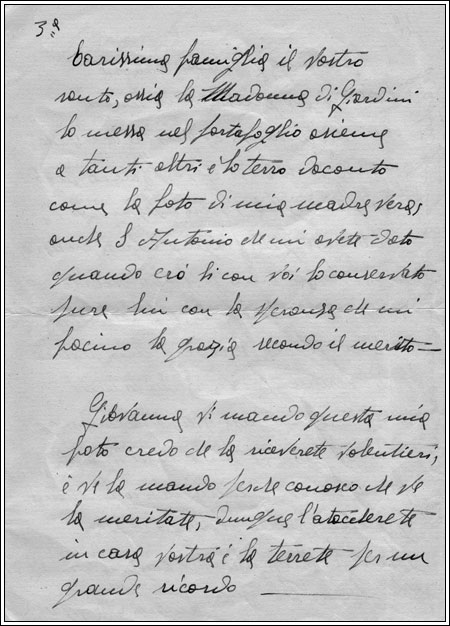 3ª
Carissima famiglia il vostro
santo, ossia la Madonna di Giardini
lo messa nel portafoglio assieme
a tanti altri é lo terro daconto
come la foto di mia madre vera,
anche S Antonio che mi avete dato
quando eró li con voi lo conservato
pure lui con la speranza che mi
facino la grazia secondo il merito —
Giovanna vi mando questa mia
foto credo che la riceverete volentieri,
é ve la mando perche conosco che ve
la meritate, dunque l'atacherete
in casa vostra é la terrete per un
grande ricordo —